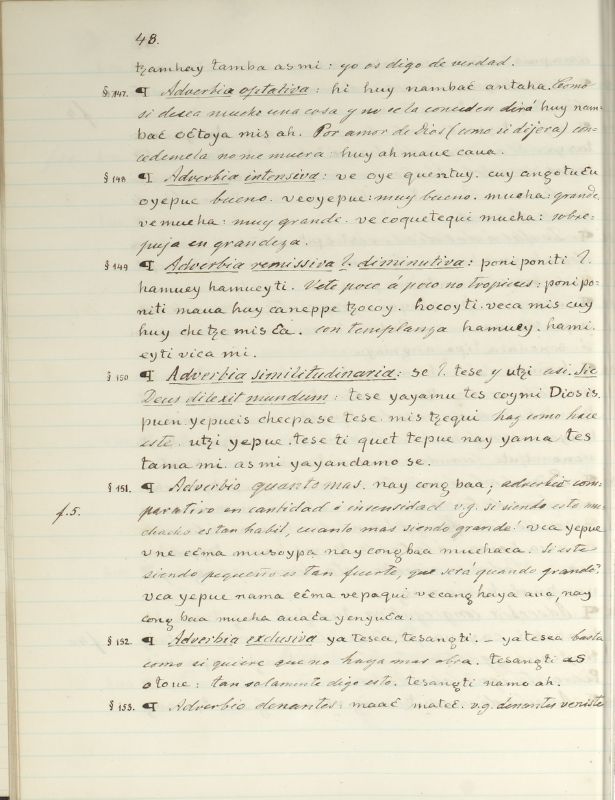 48.
tzamhay tamba asmi: yo os digo de verdad.
§ 147. ¶ Adverbia optativa: hi huy nambac̃ antaha. Como
si desea mucho una cosa y no se la conceden dirá huy nam-
bac̃ oc̃toya mis ah. Por amor de Dios (como si dijera) con-
cedemela no me muera: huy ah maue caua.
§ 148 ¶ Adverbia intensiva: ve oye quentuy. cuy angotuc̃u
oyepue bueno. veoyepue: muy bueno. mucha: grande
ve mucha: muy grande. ve coquetequi mucha: sobre-
puja en grandeza.
§ 149 ¶ Adverbia remissiva l. diminutiva: poni poniti l.
hamuey hamueyti. Vete poco á poco no tropieces: poni po-
niti maua huy caneppe tzocoy. hocoyti. veca mis cuy
huy chetze mis c̃a. con templanza hamuey. hami
eyti vica mi.
§ 150 ¶ Adverbia similitudinaria: se l. tese y utzi asi. Sic
Deus dilexit mundum: tese yayamu tes coymi Diosis
puen. yepueis checpase tese. mis tzequi haz como hace
este. utzi yepue. tese ti quet tepue nay yama tes
tama mi. asmi yayandamo se.
§ 151. ¶ Adverbio quanto mas. nay congbaa; adverbio com-
f. 5. parativo en cantidad é intensidad v.g. si siendo este mu-
chacho es tan habil, cuanto mas siendo grande! vca yepue
vne ec̃ma musoypa nay congbaa muchaca. Si este
siendo pequeño es tan fuerte, que será quando grande?
vca yepue nama ec̃ma vepaqui vecang haya aua, nay
cong baa mucha auac̃a yenyuc̃a.
§ 152. ¶ Adverbia exclusiva yatesea, tesangti. – yatesea basta
como si quiere que no haga mas obra. tesangti as
otoue: tan solamente digo esto. tesangti namo ah.
§ 153. ¶ Adverbio denantes: maac̃ matec̃. v.g. denantes veniste